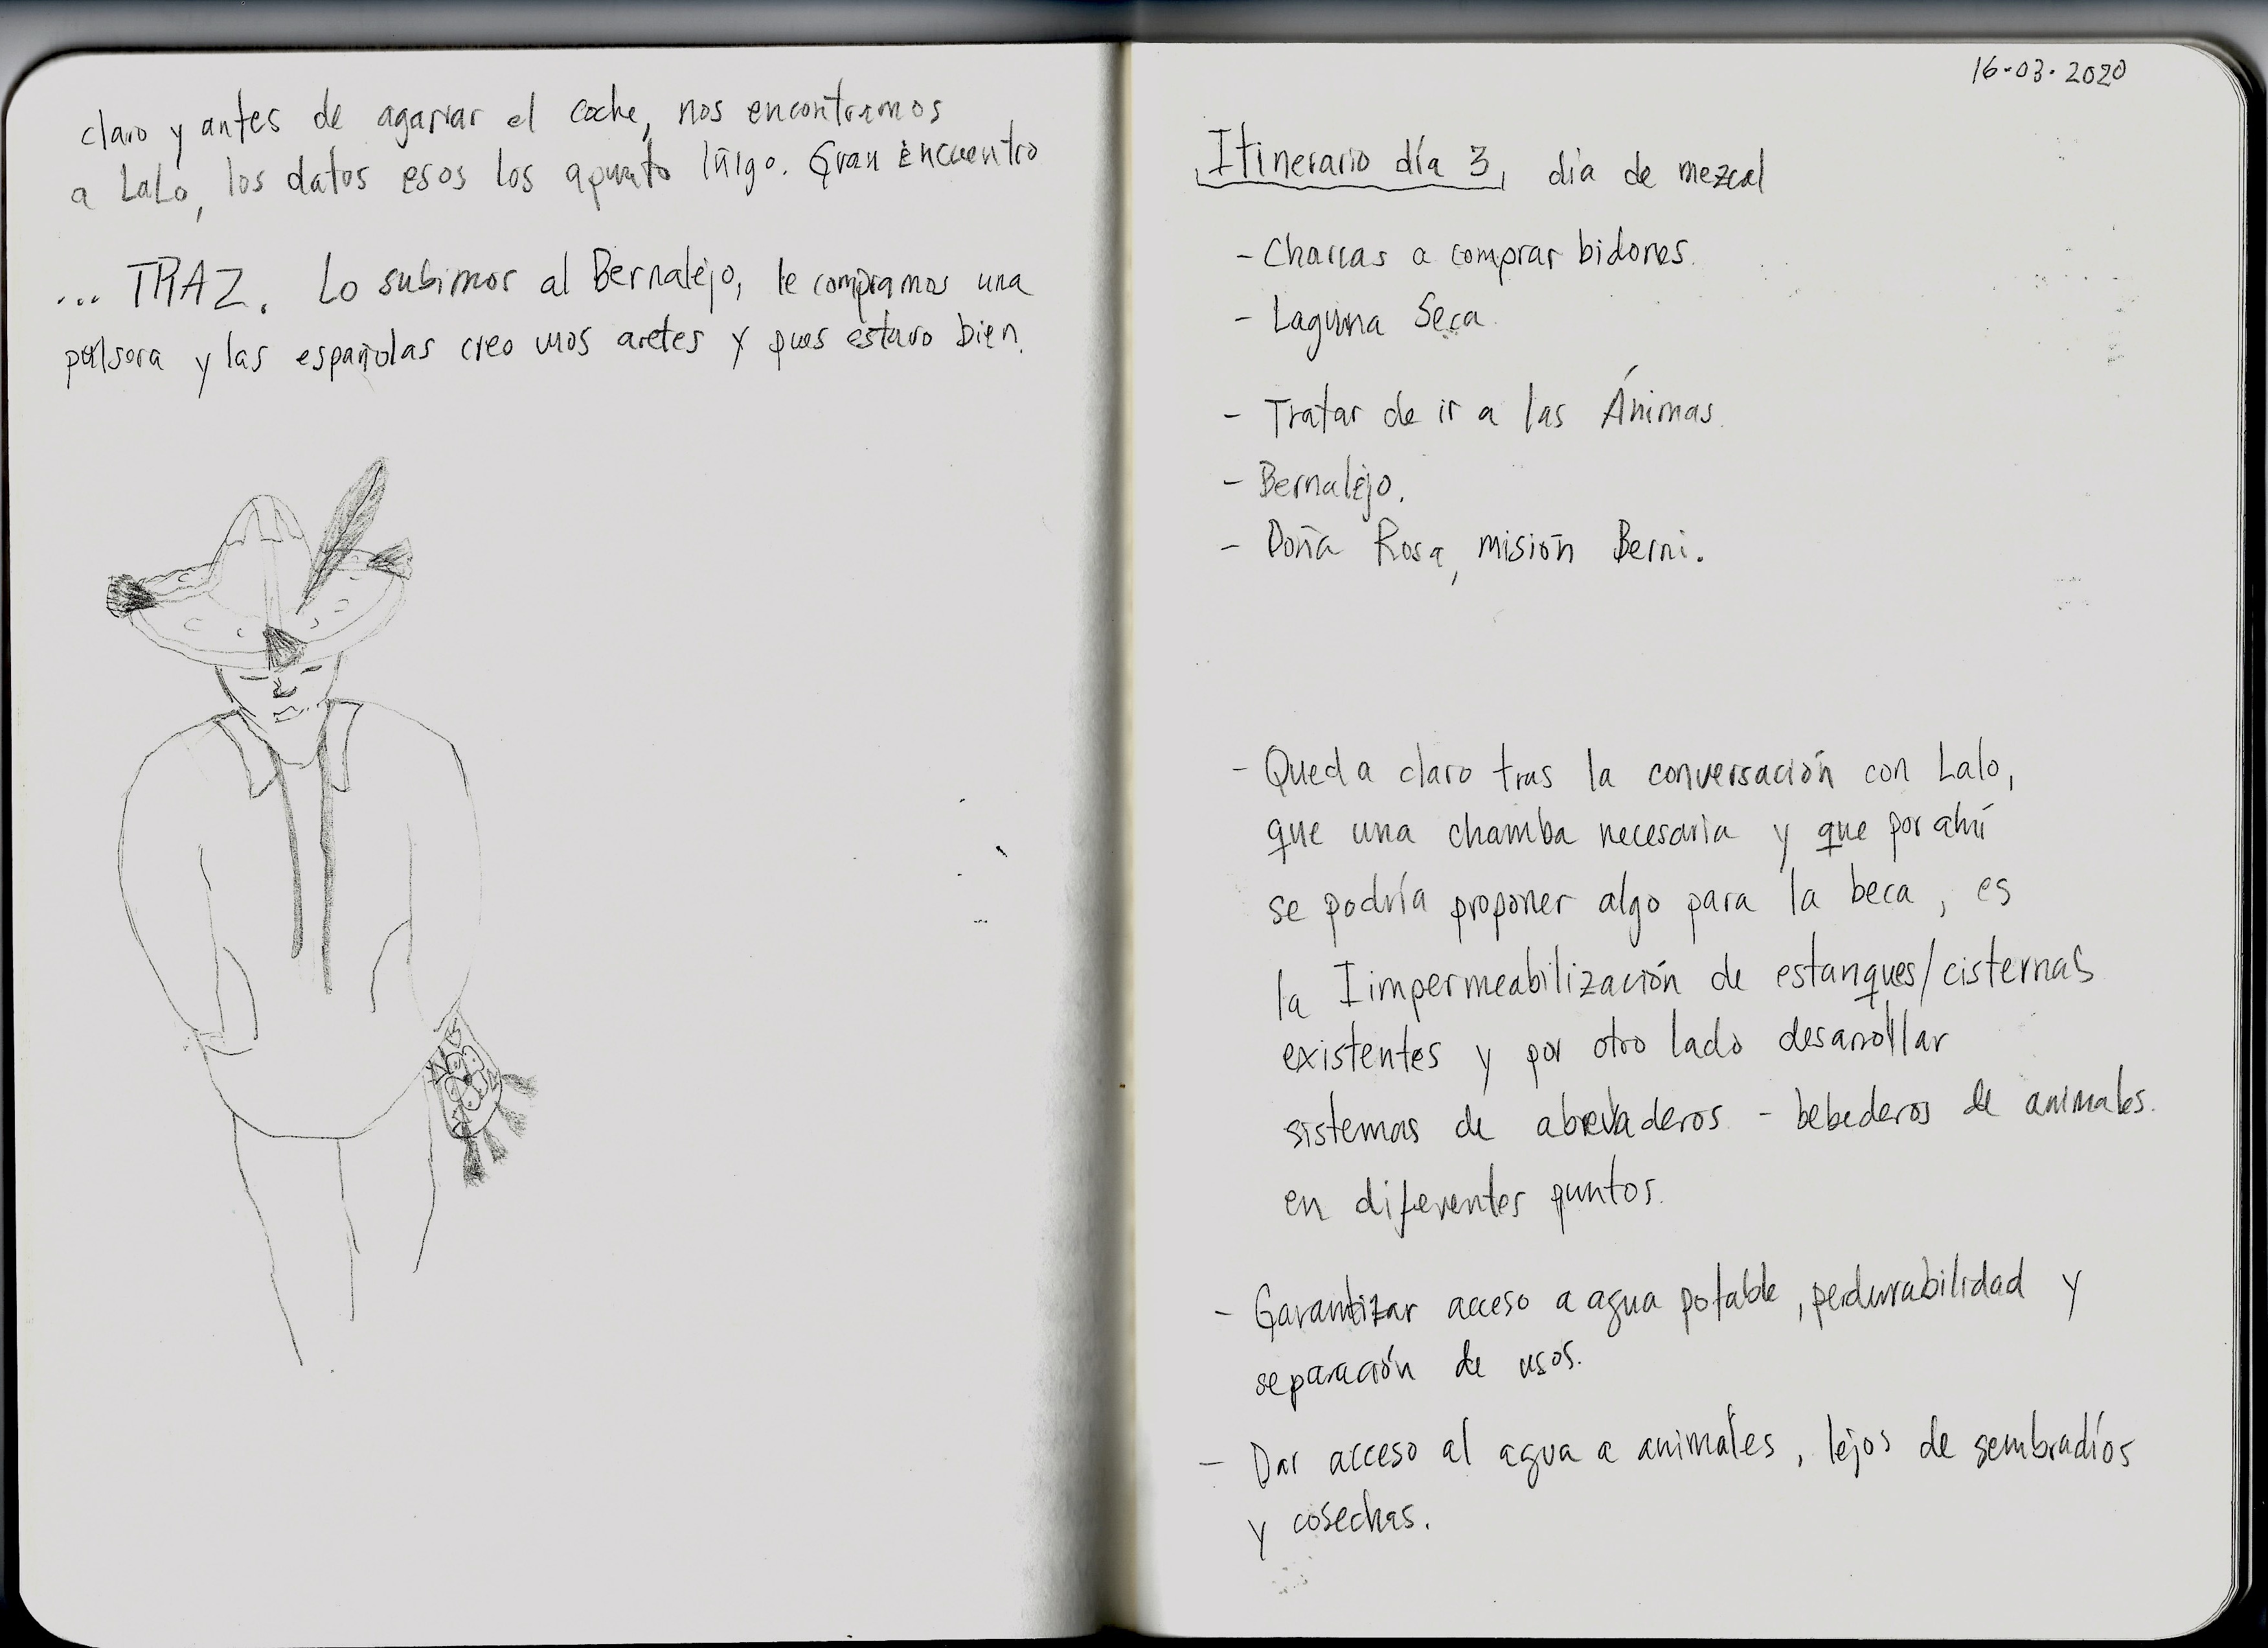 claro y antes de agarrar el coche, nos encontramos
a LaLo, los datos esos los apunto Iñigo. Gran Encuentro
... TRAZ. Lo subimos al Bernalejo, le compramos una
pulsera y las españolas creo unos aretes y pues estuvo bien.
16.03.2020
Itinerario día 3, día de mezcal
- Charcas a comprar bidones.
- Laguna Seca.
- Tratar de ir a las Ánimas.
- Bernalejo.
- Doña Rosa, misión Berni.
- Queda claro tras la conversación con Lalo,
que una chamba necesaria y que por ahí
se podría proponer algo para la beca, es
la Iimpermeabilización de estanques/cisternas
existentes y por otro lado desarrollar
sistemas de abrevaderos - bebederos de animales.
en diferentes puntos.
- Garantizar acceso a agua potable, perdurabilidad y
separación de usos.
- Dar acceso al agua a animales, lejos de sembradíos
y cosechas.